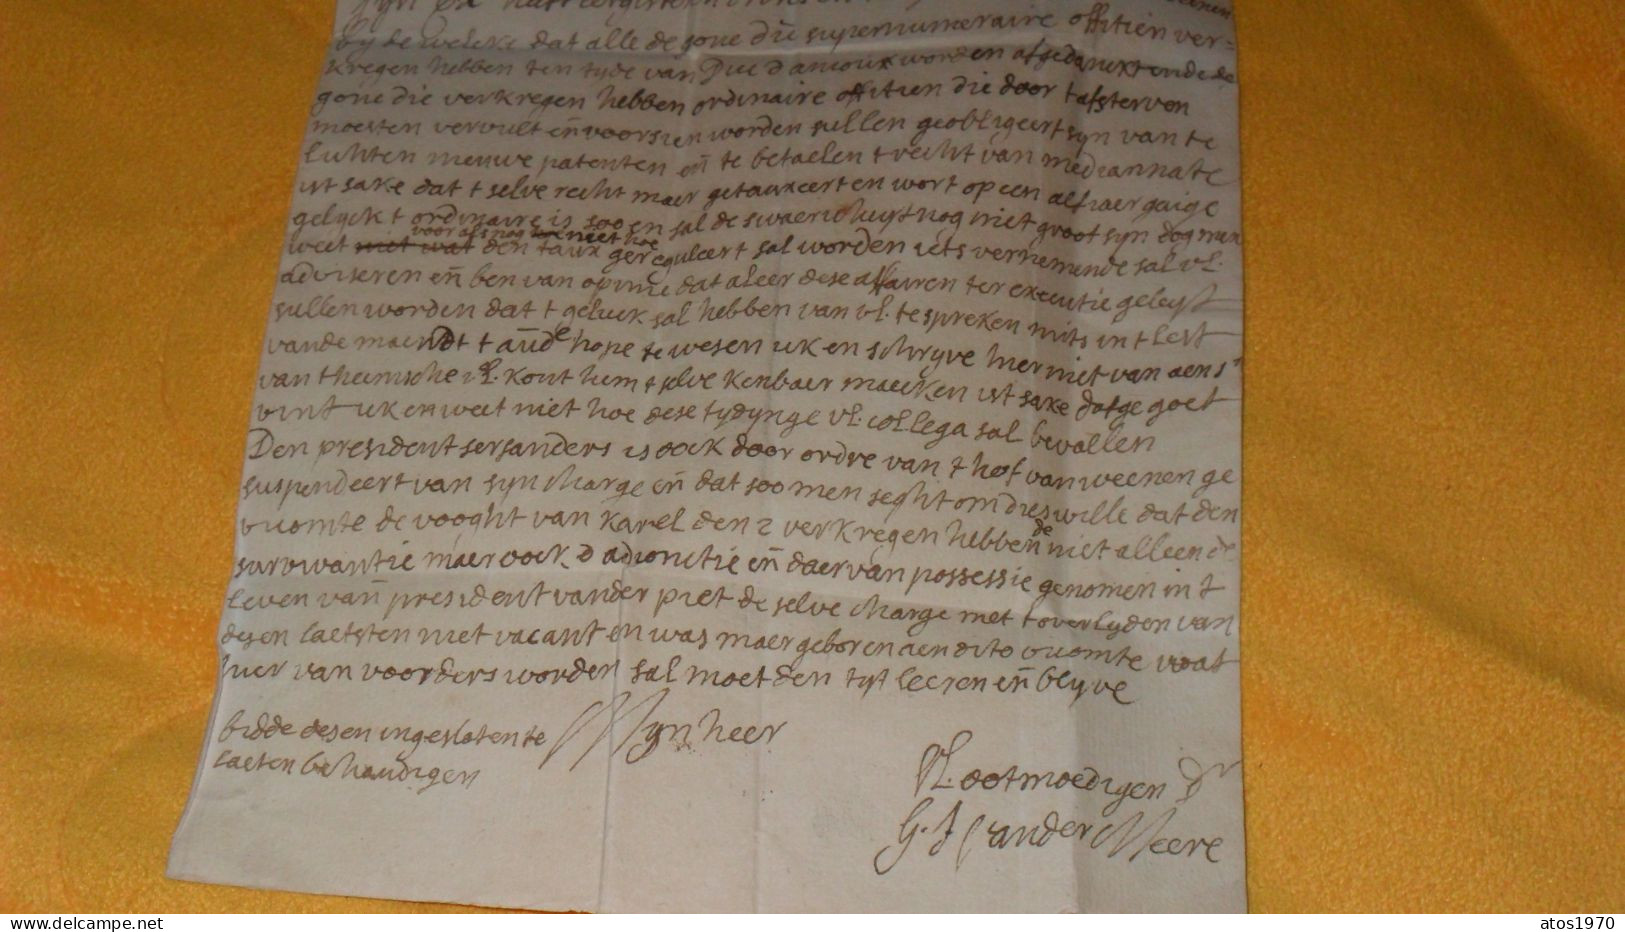 by de welcke dat alle de gone die supernumeraire offitien ver=
kregen hebben ten tyde van Duc d'anioux worden afgedanckt ende de
gone die verkregen hebben ordinaire offitien die door t afstervon
moesten vervult en̄ voorsien worden sullen geobligeert syn van te
lichten nieuwe patenten en̄ te betaelen t recht van mediannate
ist sake dat t selve recht maer getauxeert en wort op een alf jaer gaige
gelyck t ordinaire is soo en sal de swaericheyt nog niet groot syn dog men
voor als nog niet hoe
weet niet wat den taux gereguleert sal worden iets vernemende sal vl.
adviseren en̄ ben van opinie dat aleer dese affairen ter executie geleyst
sullen worden dat t geluck sal hebben van vl. te spreken mits in t lest
vande maendt t aude hope te wesen ick en schryve hier niet van aen sr
van themsche vl. kont hem t selve kenbaer maecken ist sake dat ge goet
vint ick en weet niet hoe dese tydynge vl. collega sal bevallen
Den president sersanders is oock door ordre van t hof van weenen ge
suspendeert van syn charge en̄ dat soo men seght om dies wille dat den
vicomte de vooght van Karel den 2 verkregen hebbende niet alleen de
survivantie maer oock d adionctie en̄ daer van possessie genomen in t
leven van̄ president vander piet de selve charge met t overlyden van
desen laetsten niet vacant en was maer geboren aen dito vicomte wat
hier van voorders worden sal moet den tyt leeren en̄ blyve
Mynheer
bidde desen ingesloten te
laeten behandigen
Vl. ootmoedigen dr
G. J vander Meere
atos1970